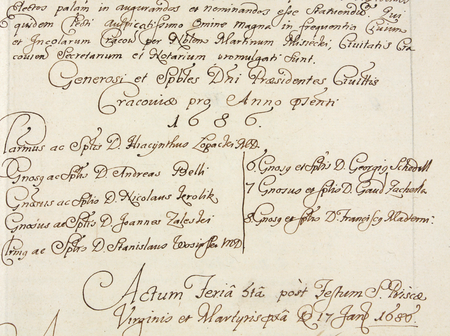 Electos palam in augurandos et nominandos esse Statuendo
quidem Electi Auspicatissimo Omine magna in frequentia Civium
et Incolarum Cracov. per Nblem Martinum Misiecki, Civitatis Cra
covien Secretarium et Notarium promulgati sunt.
Generosi et Spbles Dni Præsidentes Civittis
Cracoviæ pro Anno Pſenti
1686.
ac Spblis D. Hiacynthus Łopacki MD.
Gnosy ac Spblis D. Andreas Belli
ac Spblis D. Nicolaus Krolik
ac Spblis D. Joannes Zaleski
ac Spblis D. Stanislaus MD
6 Gnosy et Spblis D. Georgiy
7 Gnosus et Spblis D. Gaud. Zacherla
8 Gnosy et Spblis D. Franciscy
Actum Feria 5ta post Festum S. Priscæ
Virginis et Martyris 17 Janu 1686.